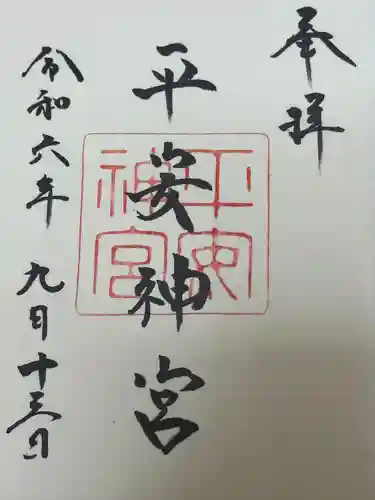 奉拝
平安神宮
平安
神宮
令和六年 九月十三日